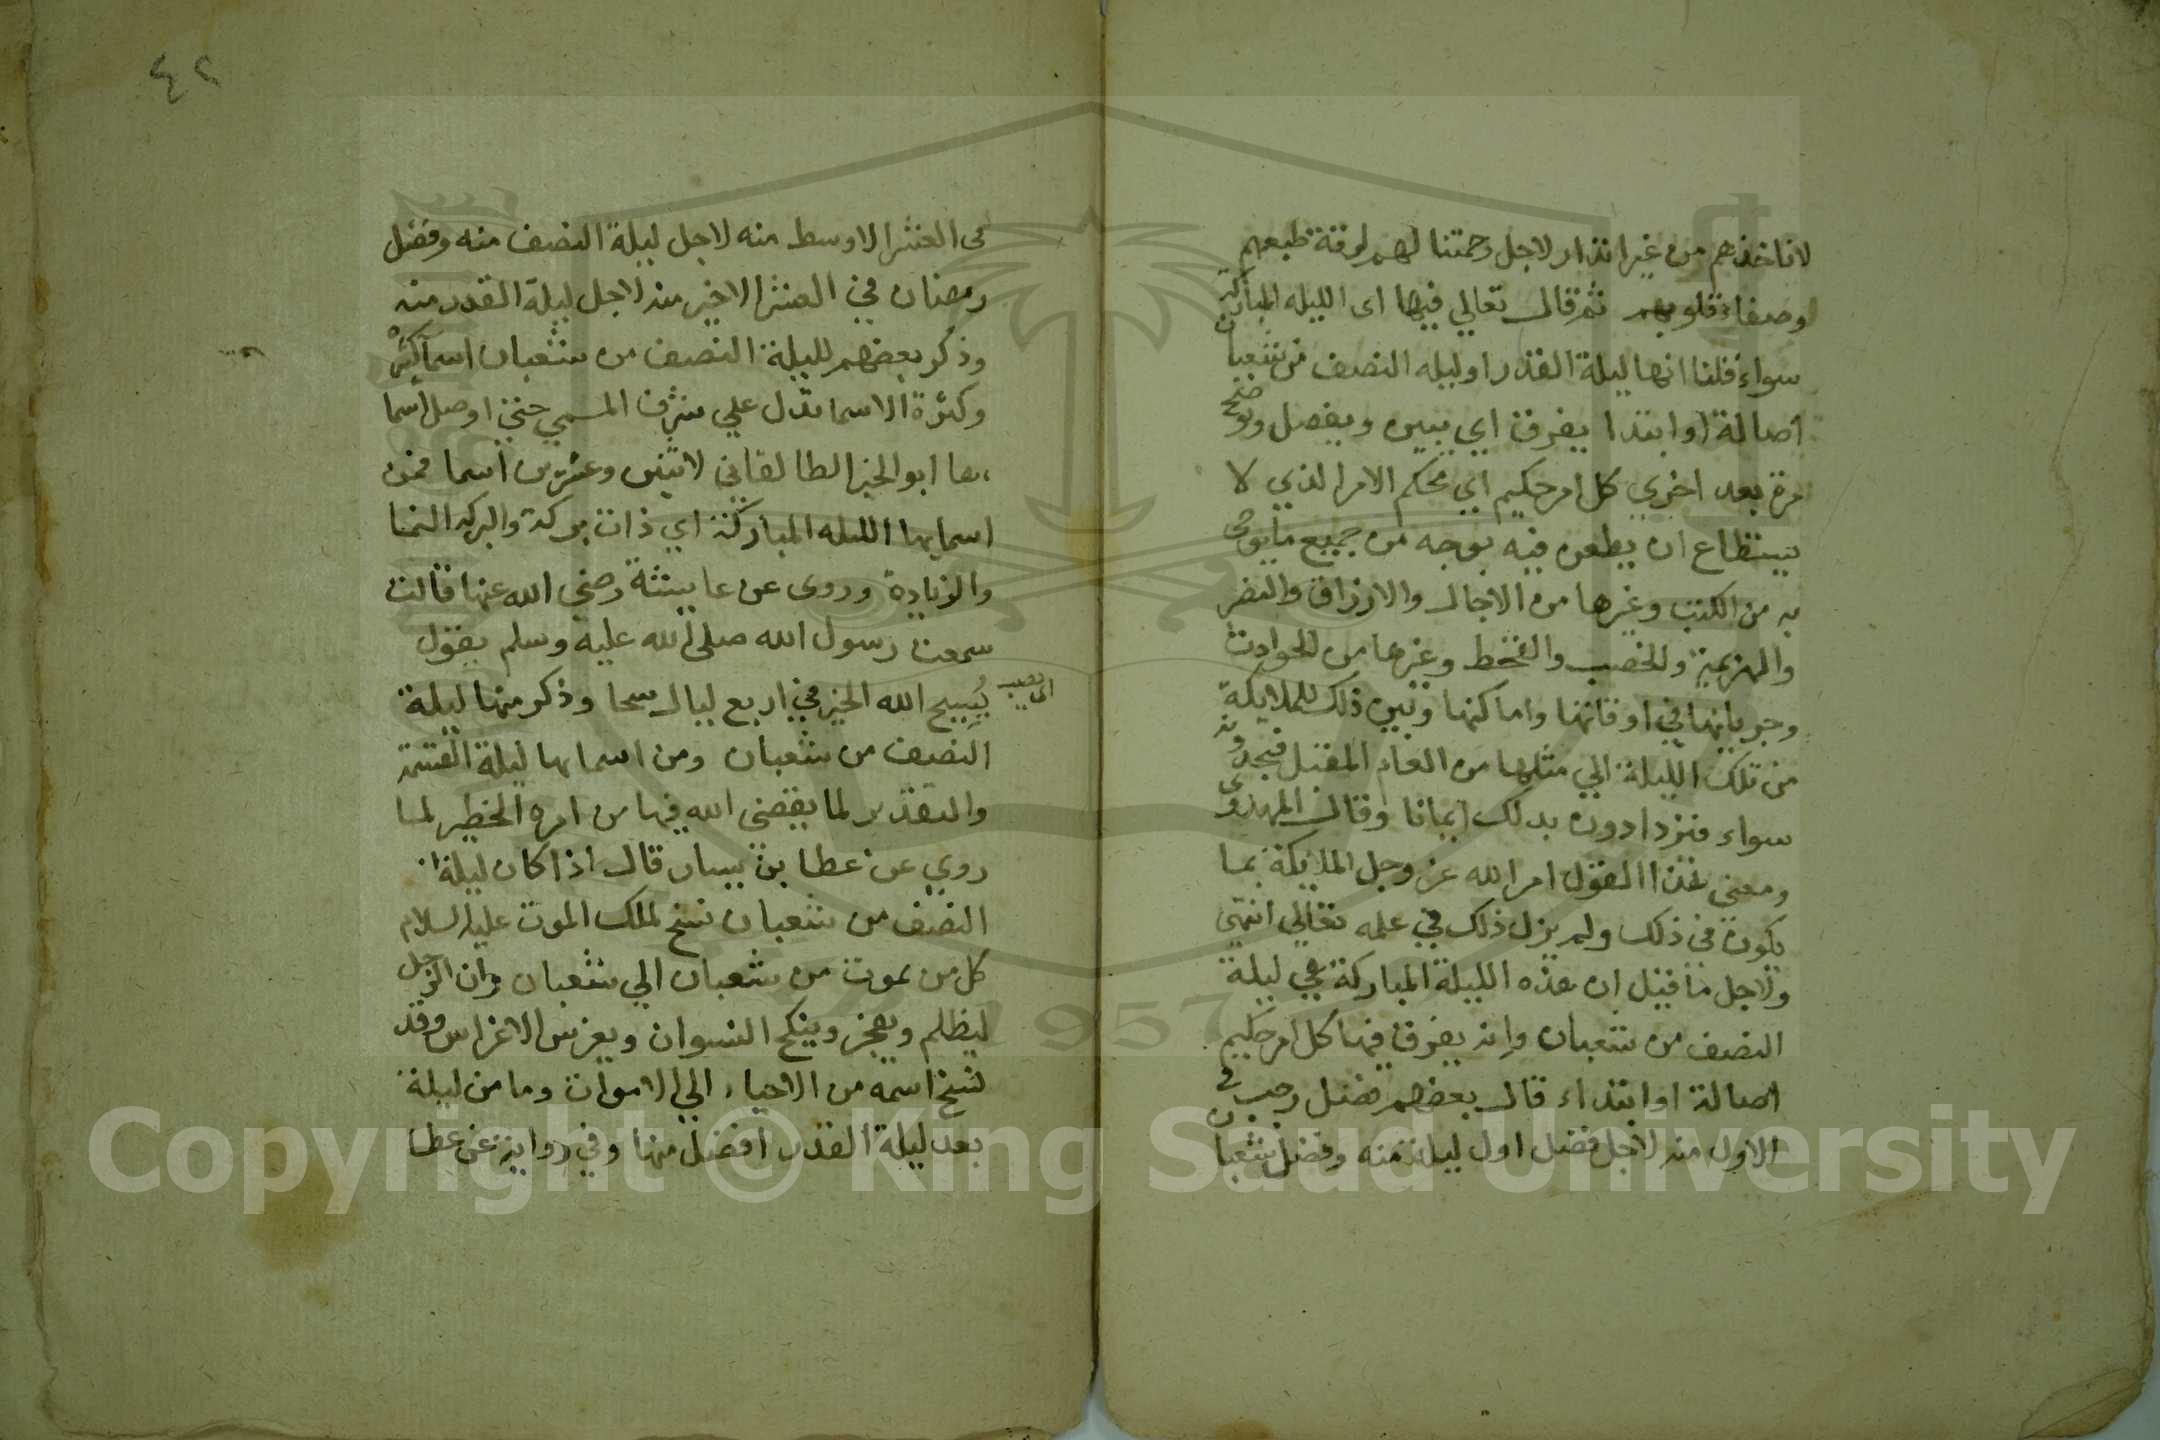 لاناخذهم من غير انذار لاجل رحمتنا لهم لرقة طبعهم
وصفاء قلوبهم ثم قال تعالي فيها اى الليله المباركة
سواء قلنا انها ليلة القدر او ليله النصف من شعبان
اصالة او ابتدا يفرق اي يبين ويفصل ويوضح
مرة بعد اخري كل امر حكيم اي محكم الامر الذي لا
يستطاع ان يطعن فيه بوجه من جميع ما يوحى
به من الكتب وغيرها من الاجال والارزاق والنصر
والهزيمة والخصب والقحط وغيرها من الحوادث
وجريانها في اوقاتها واماكنها ونبين ذلك للملايكة
من تلك الليلة الي مثلها من العام المقبل فيجدونه
سواء فيزدادون بذلك ايمانا وقال المهدوى
ومعنى هذا القول امر الله عز وجل الملايكة بما
يكون في ذلك ولم يزل ذلك في علمه تعالي انتهى
ولاجل ما قيل ان هذه الليلة المباركة هي ليلة
النصف من شعبان وانه يفرق فيها كل امر حكيم
اصالة او ابتداء قال بعضهم فضل رجب في
الاول منه لاجل فضل اول ليلة منه وفضل شعبان
٤٢
في العشر الاوسط منه لاجل ليلة النصف منه وفضل
رمضان في العشر الاخير منه لاجل ليلة القدر منه
وذكر بعضهم لليلة النصف من شعبان اسما كثيره
وكثرة الاسما تدل علي شرف المسمي حتي اوصل اسما
ءها ابو الخير الطالقاني لاثنين وعشرين اسما فمن
اسمايها الليله المباركة اي ذات بركة والبركه النما
والزيادة وروى عن عايشة رضي الله عنها قالت
سمعت رسول الله صلى الله عليه وسلم يقول
يُسِيح الله الخير في اربع ليال سحا وذكر منها ليلة
النصف من شعبان ومن اسمايها ليلة القسمة
والتقدير لما يقضى الله فيها من امره الخطير لما
روي عن عطا بن يسار قال اذا كان ليلة
النصف من شعبان نسخ لملك الموت عليه السلام
كل من يموت من شعبان الي شعبان وان الرجل
ليظلم ويفجر وينكح النسوان ويغرس الاغراس وقد
نسخ اسمه من الاحياء الي الاموات وما من ليلة
بعد ليلة القدر افضل منها وفي رواية عن عطا
Copyright © King Saud University
1957